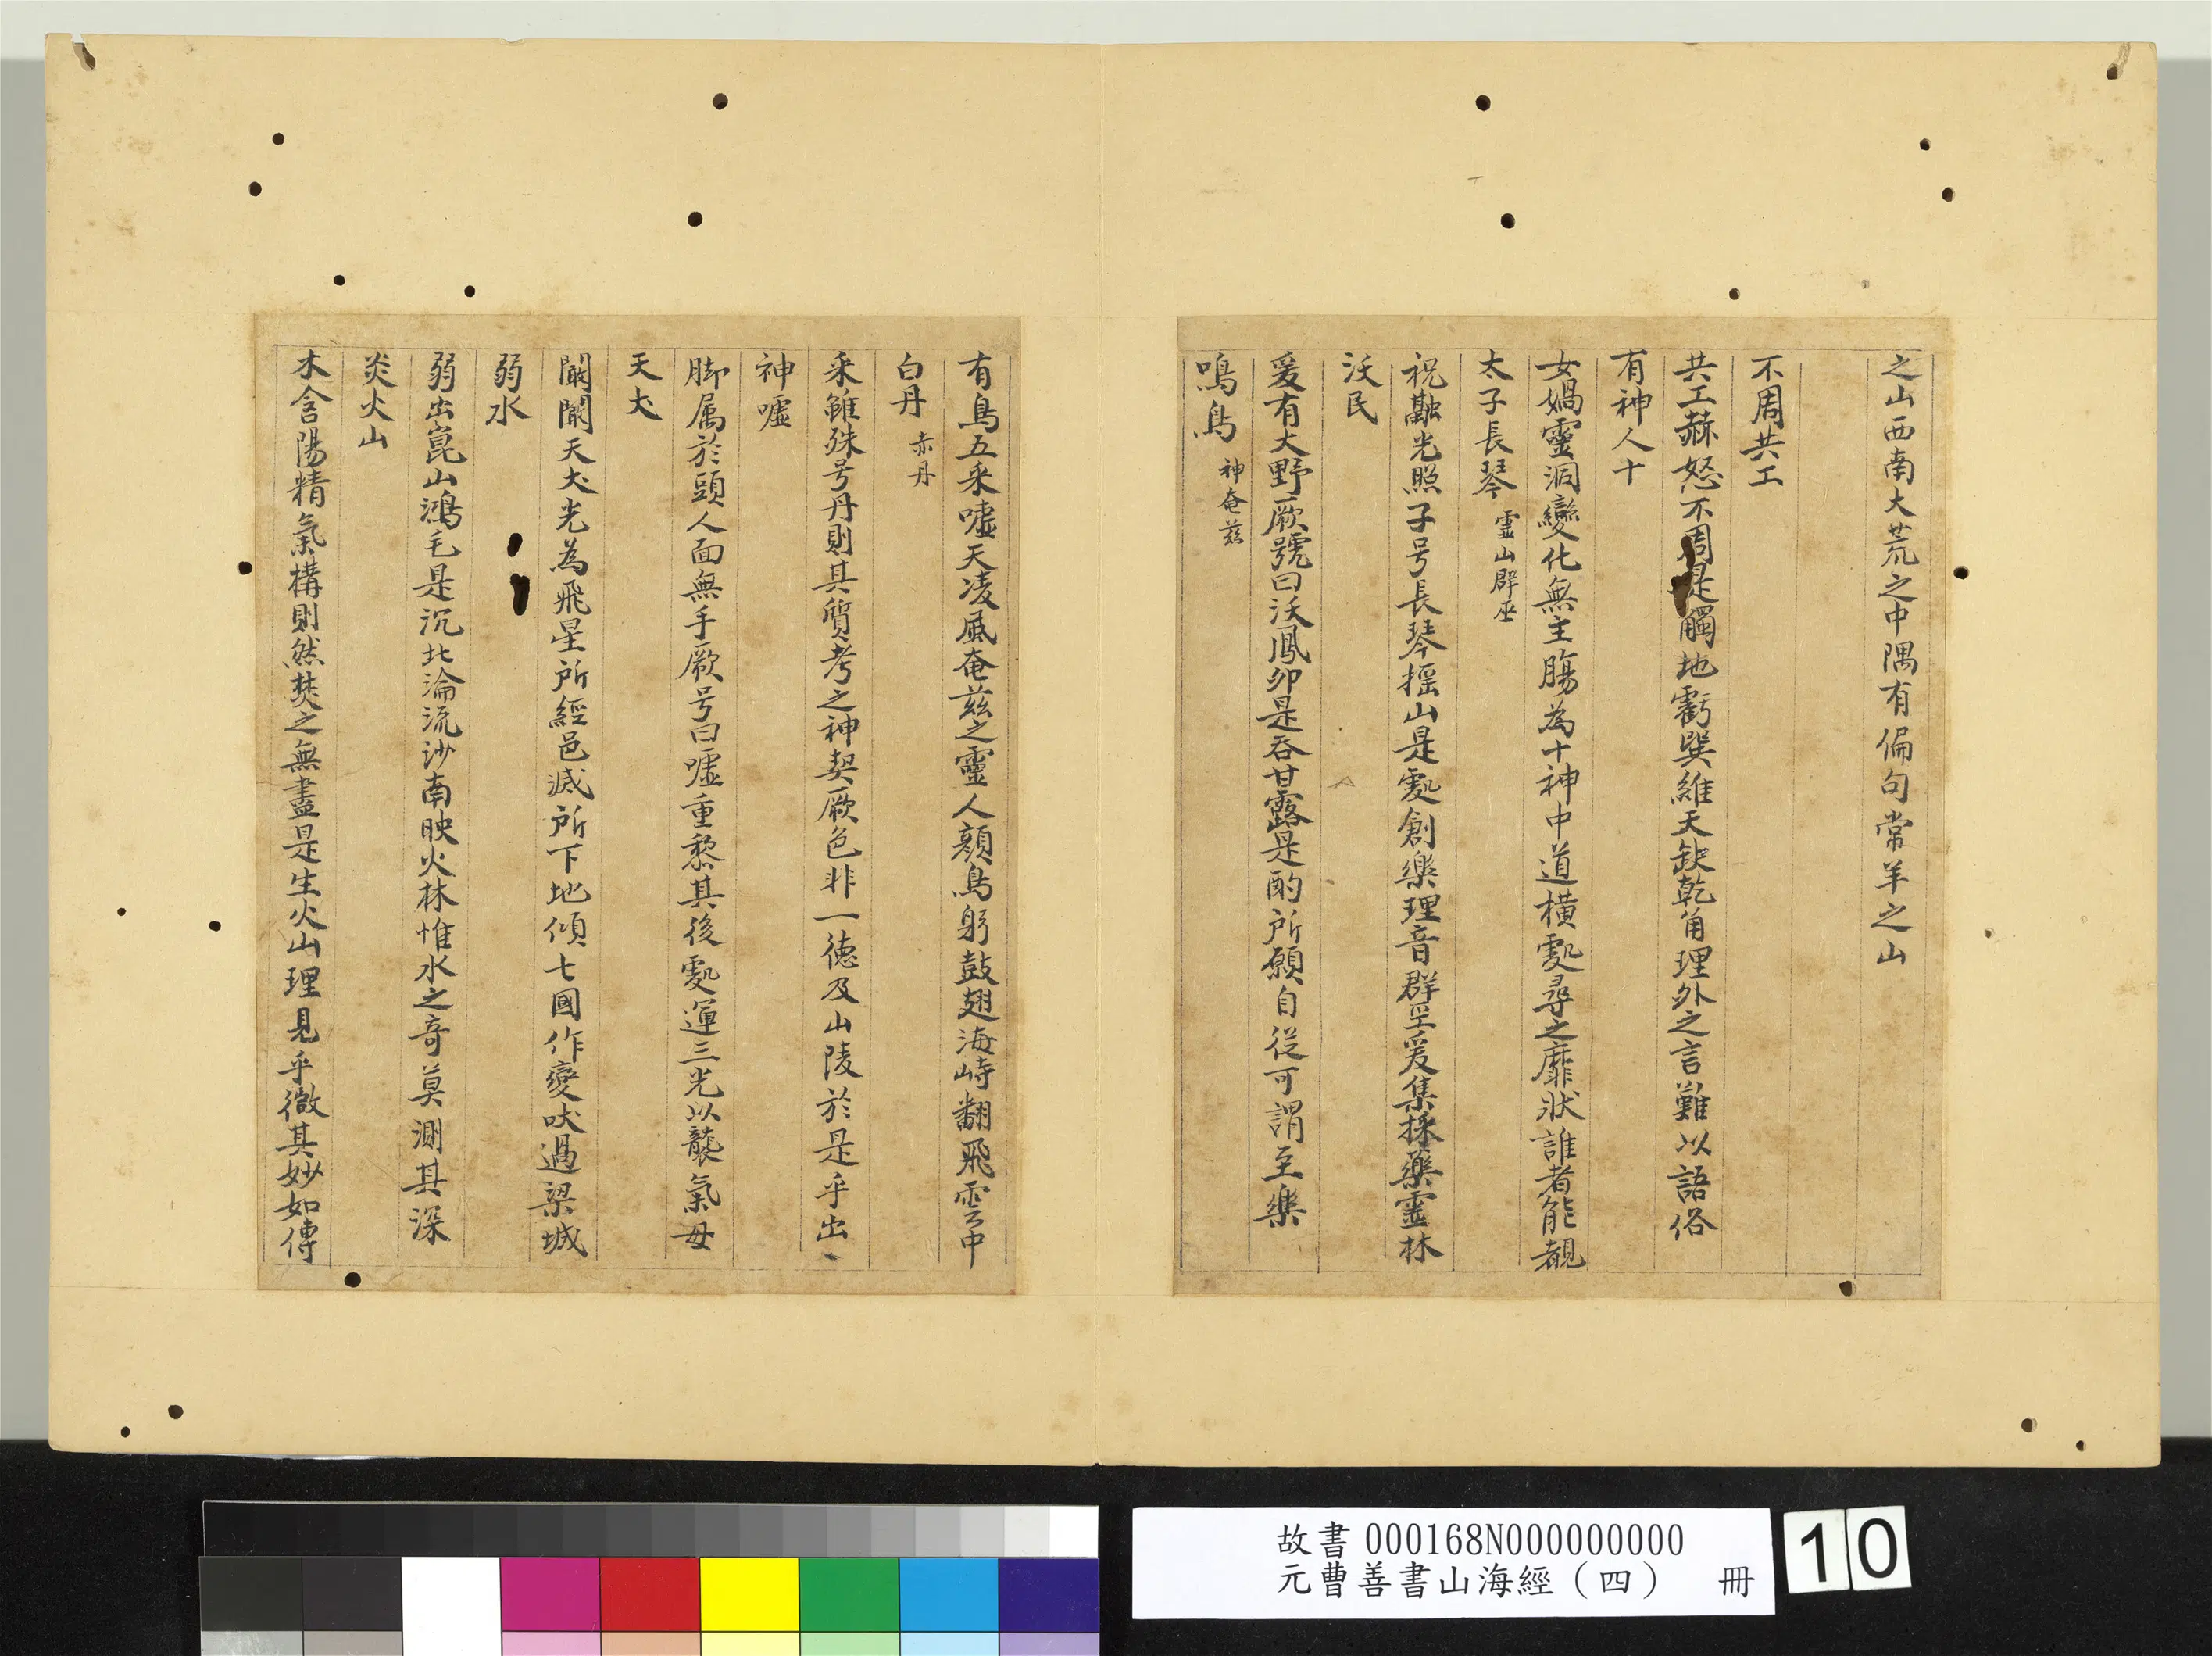 之山西南大荒之中隅有偏句常羊之山
不周共工
共工赫怒不周是觸地虧巽維天缺乾角理外之言難以語俗
有神人十
女媧靈洞變化無主膓為十神中道橫䖏尋之靡狀誰者能覩
太子長琴 靈山辟巫
祝融光照子号長琴揺山是䖏創樂理音群巫爰集採藥靈林
沃民
爰有大野厥號曰沃鳳卵是吞甘露是酌所願自従可謂至樂
鳴鳥 神奄兹
有鳥五采嘘天凌風奄兹之靈人顔鳥躬鼓翅海峙翻飛雲中
白丹 赤丹
采雖殊号丹則其質考之神契厥色非一德及山陵於是乎出
神嘘
脚属於頭人面無手厥号曰嘘重黎其後䖏運三光以襲氣母
天犬
闞闞天犬光為飛星所經邑滅所下地傾七國作變吠過梁城
弱水
弱出崑山鴻毛是沉北淪流沙南映火林惟水之奇莫測其深
炎火山
木含陽精氣構則然焚之無盡是生火山理見乎微其妙如傳
故書000168N000000000
元曹善書山海經（四） 冊
10